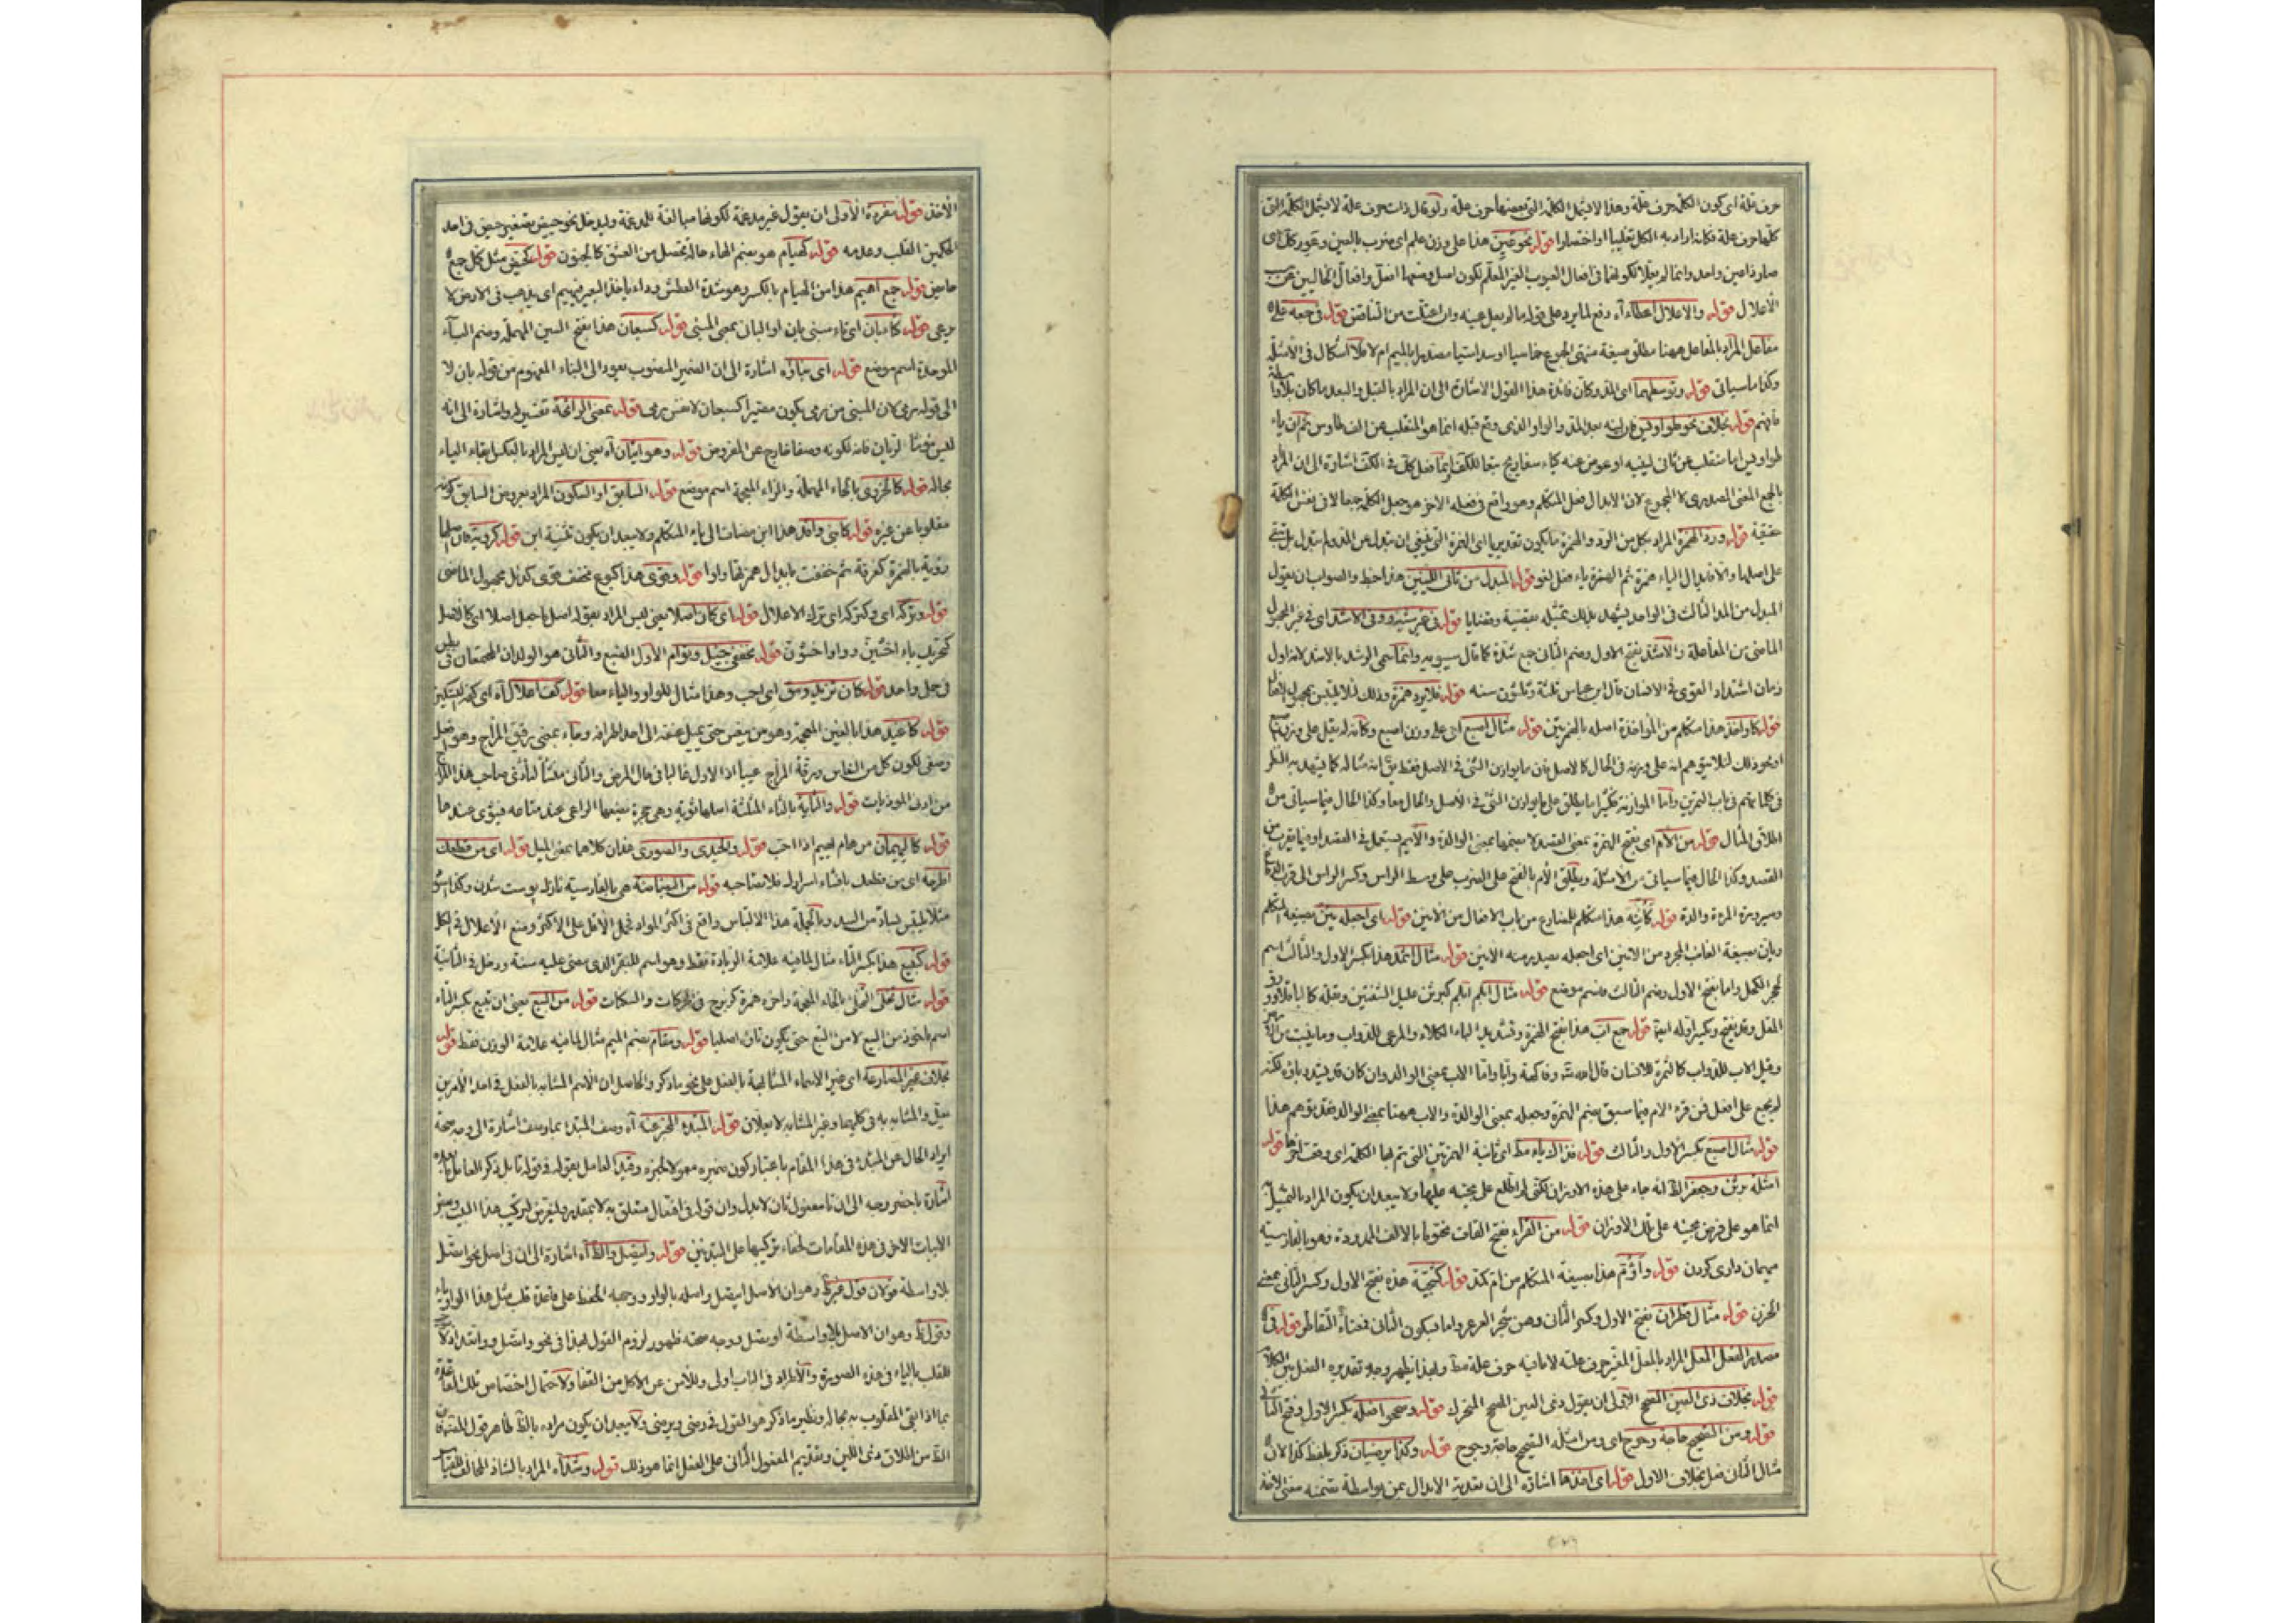 حرف علة اى كون الكلمة حرف علة وهذا لا يشمل الكلمة التى بعضها حرف علة ولو قال ذات حرف علة لا يشمل الكلمة التى
كلها حرف علة فكانه اراد به الكل تغليبا او اختصارا قوله نحو عين هذا على وزن علم اى ضرب بالعين وعور كل اى
صار ذا عين واحد وانما لم يعلا لكونهما فى افعال العيوب الغير المعلة لكون اصل وضعها افعل وافعال الخاليين عن
الاعلال قوله والاعلال اعطاء آه دفع لما يرد على قوله ما لم يعل عينه وان اعتلت من الناقص قوله فى جمعه على
مفاعل المراد بالمفاعل ههنا مطلق صيغة منتهى الجموع خماسيا او سداسيا مصدرا بالميم ام لا فلا اشكال فى الامثلة
وكذا ما سياتى قوله وتوسطهما اى المد وكان فائدة هذا القول الاشارة الى ان المراد بالقبل والبعد ما كان بلا
فافهم قوله بخلاف نحو طواويس فان لينه بعد المد والواو الذى وقع قبله انما هو المنقلب عن الف طاوس ثم ان ياء
طواويس اما منقلب عن ثانى لينيه او عوض عنه كياء سفاريج
بالجمع المعنى المصدرى لا المجموع لان الابدال فعل المتكلم وهو واقع فى فعله الاخر هو جعل الكلمة جمعا لا فى نفس الكلمة
حقيقة قوله ورد الهمزة المراد بكل من الود والهمزة ما يكون تقديريا اى الهمزة التى ينبغى ان تبدل عن المد ولم تبدل بل تبقى
على اصلها والا فابدال الياء همزة ثم الهمزة ياء فعل لغو قوله المبدل من ثانى اللينين هذا خبط والصواب ان يقول
المبدل من المد الثالث فى الواحد يشهد بذلك تمثيله بقضية وقضايا قوله فى غير
الماضى من المفاعلة والاشد بفتح الاول وضم الثانى جمع شدة كما قال سيبويه وانما سمى الرشد بالاشد لانه اول
زمان اشتداد القوى فى الانسان قال ابن عباس ثلثة وثلثون سنه قوله فلا يرد همزة وذلك لئلا يلتبس بمجهول
قوله كأواخذ هذا متكلم من المواخذة اصله بالهمزتين قوله مثال اصبع اى على وزن اصبع وكانه لم يقل على وزن
او نحو ذلك لئلا يتوهم انه على وزنه فى الحال كالاصل فان ما يوازن الشئ فى الاصل فقط يق انه مثاله كما يشهد به النظر
فى كلماتهم فى باب التمرين واما الموازنة فكثيرا ما يطلق على ما يوازن الشئ فى الاصل والحال معا وكذا الحال فيما سياتى من
اطلاق المثال قوله من الأم اى بفتح الهمزة بمعنى القصد لا بضمها بمعنى الوالدة والأم يستعمل فى القصد
القصد وكذا الحال فيما سياتى من الامثلة ويطلق الأم بالفتح على الضرب على وسط الراس وكسر الراس الى
وصيرورة المرءة والدة قوله كأئنه هذا متكلم المضارع من باب الافعال من الانين قوله اى اجعله يئن بصيغة المتكلم
وياتى بصيغة الغائب المجرد من الانين اى اجعله بعيد منه الانين قوله مثال اثمد هذا بكسر الاول والثالث اسم
لحجر الكحل واما بفتح الاول وضم الثالث فاسم موضع قوله مثال ابلم
المقل وقد يفتح ويكسر اوله ايضا قوله جمع اب هذا بفتح الهمزة وتشديد الباء الكلاء والمرعى للدواب وما ينبت من
وقيل الاب للدواب كالثمرة للانسان قال الله تعـ وفاكهة وأبا واما الاب بمعنى الوالد وان كان قد يشدد باؤه لكنه
لم يجمع على افعل فمن قرء الام فيما سبق بضم الهمزة وجعله بمعنى الوالدة والاب ههنا بمعنى الوالد فقد توهم هذا
قوله مثال اصبع بكسر الاول والثالث قوله فذاك ياء مط اى ثانية الهمزتين التى يتم بها الكلمة اى وقعت
امثلة برثن وجعفر انه جاء على هذه الاوزان لكنى لم اطلع على مجيئه عليها ولا يبعد ان يكون المراد بالتمثيل
انما هو على فرض مجيئه على تلك الاوزان قوله من القراء بفتح القاف مختوما بالالف الممدودة وهو بالفارسية
ميهمان دارى كردن قوله وأؤم هذا بصيغة المتكلم من ام كمد قوله كشجية هذه بفتح الاول وكسر الثانى بمعنى
الحزن قوله مثال قطران بفتح الاول وكسر الثانى وهى شجر العرعر واما بسكون الثانى فمعناه التقاطر قوله فى
مصدر الفعل المعل المراد بالمعل المغير حرف علته لا ما فيه حرف علة مط ولهذا يظهر وجه تقديره الفعل بين
قوله بخلاف ذى العين الصحيح الاولى ان يقول وذى العين الصحيح المتحرك قوله وصححوا فعلة بكسر الاول وفتح الثانى
قوله ومن الصحيح حاجة وحوج اى ومن امثلة الصحيح حاجة وحوج قوله وكذا يرضيان ذكر بلفظ كذا لان
مثال الثانى فعل بخلاف الاول قوله اى اخذها اشارة الى ان تعدية الابدال بمن بواسطة تضمنه معنى الاخذ
الاخذ قوله مفردة الاولى ان يقول غير مدغمة لكونها مبالغة للمدغمة وليدخل نحو حييض تصغير حيض فى احد
الحكمين القلب وعدمه قوله كهيام هو بضم الهاء حالة تحصل من العشق كالجنون قوله كحيض مثل كمل جمع
حائض قوله جمع اهيم هذا من الهيام بالكسر وهو شدة العطش وداء ياخذ البعير فيهيم اى يذهب فى الارض لا
يرعى قوله كتاء بان اى تاء مبنى بان او البانى بمعنى المبنى قوله كسبعان هذا بفتح السين المهملة وضم الباء
الموحدة اسم موضع قوله اى بناؤه اشارة الى ان الضمير المنصوب يعود الى البناء المفهوم من قوله بان لا
الى قوله رمى لان المبنى من رمى يكون مصيرا كسبعان لا نفس رمى قوله بمعنى الرائحة تفسير له واشارة الى انه
ليس مؤنثا لريان فانه لكونه وصفا خارج عن المفروض قوله وهو اتيان آه يعنى ان ليس المراد بالعكس ابقاء الياء
بحاله قوله كالحزوى بالحاء المهملة والزاء المعجمة اسم موضع قوله السابق او السكون المراد بعروض السابق كونه
مقلوبا عن غيره قوله كابنى وافد هذا ابن مضاف الى ياء المتكلم ولا يبعد ان يكون تثنية ابن قوله كروية فان اصلها
رؤية بالهمزة كغرفة ثم خففت بابدال همزتها واوا قوله وقوى هذا كبوع مخفف قوى كدئل مجهول الماضى
قوله وتركه اى وكتركه اى ترك الاعلال قوله اى كان اصلا يعنى ليس المراد بقوله اصل ما جعل اصلا اى كالاصل
كتحريك ياء اخشين وواو اخشون قوله كمخفى جيئل وتوأم الاول الضبع والثانى هو الولدان المجتمعان فى بطن
فى حمل واحد قوله كان تزيد ومق اى احب وهذا مثال للواو والياء معا قوله كفا علال آه اى كهذا التكثير
قوله كاغيد هذا بالغين المعجمة وهو من ينعس حتى يميل عنقه الى احد اطرافه وجاء بمعنى رقيق المزاج وهو فعل
وصفى لكون كل من النعاس ورقة المزاج عيبا اذ الاول غالبا فى حال المرض والثانى منشأ لتأذى صاحب هذا المزاج
من ادنى الموذيات قوله والثاية بالثاء المثلثة اصلها ثوية وهى حجرة يضعها الراعى عند متاعه فيثوى عندها
قوله كالهيمان من هام يهيم اذا احب قوله والحيدى والصورى هذان كلاهما بمعنى الميل قوله اى من قطعك
اطرحه اى من قطعك بافشاء اسرارك فلا تصاحبه قوله
مثلا يلتبس بساد من السيد وبالجملة هذا الالتباس واقع فى اكثر المواد فحمل الاقل على الاكثر ومنع الاعلال فى الكل
قوله كتبيع هذا بكسر التاء مثال لما فيه علامة الزيادة فقط وهو اسم للبقر الذى مضى عليه سنة ودخل فى الثانية
قوله مثال تحلئ التحلئ بالحاء المعجمة واخره همزة كزبرج فى الحركات والسكنات قوله من البيع يعنى ان تبيع بكسر التاء
اسم ماخوذ من البيع لا من التبع حتى يكون تاؤه اصليا قوله ومقام بضم الميم مثال لما فيه علامة الوزن فقط قوله
بخلاف غير المضارعة اى غير الاسماء المشابهة بالفعل على نحو ما ذكر والحاصل ان الاسم المشابه بالفعل فى احد الامرين
يعل والمشابه به فى كليهما وغير المشابه لا يعلان قوله المبتدء المخبر عنه آه وصف المبتدء بما وصف اشارة الى وجه صحة
ايراد الحال عن المبتدء فى هذا المقام باعتبار كون ضميره معمولا لخبره وقيد العامل بقوله وقوله تا بل ذكر العامل
اشارة باخصر وجه الى ان تا مفعول ثان لابدل وان قوله فى افتعال متعلق به لا بمقدر ولم يتعرض لتركيب هذا البيت وبعض
الابيات الاخر فى هذه المقامات لخفاء تركيبها على المبتدئين قوله وايتصل واتصل آه اشارة الى ان فى اصل نحو اتصل
بلا واسطة قولان قول وهو ان الاصل ايتصل واصله بالواو ووجهه الحفظ على قاعدة قلب مثل هذا الواو ياء
وقول وهو ان الاصل بلا واسطة اوتصل ووجه صحته ظهور لزوم القول بهذا فى نحو واتصل
للقلب بالياء فى هذه الصورة والاطراد فى الباب اولى وللامن عن الاكل من القفا ولاحتمال اختصاص تلك القاعدة
بما اذا بقى المقلوب به بحاله ونظير ما ذكر هو القول فى رضى ويرضى ولا يبعد ان يكون مراده بالظ ظاهر قول المصنف
الظ من اطلاق ذى اللين وتقديم المفعول الثانى على الفعل انما هو ذلك قوله وشذ آه المراد بالشاذ المخالف للقياس